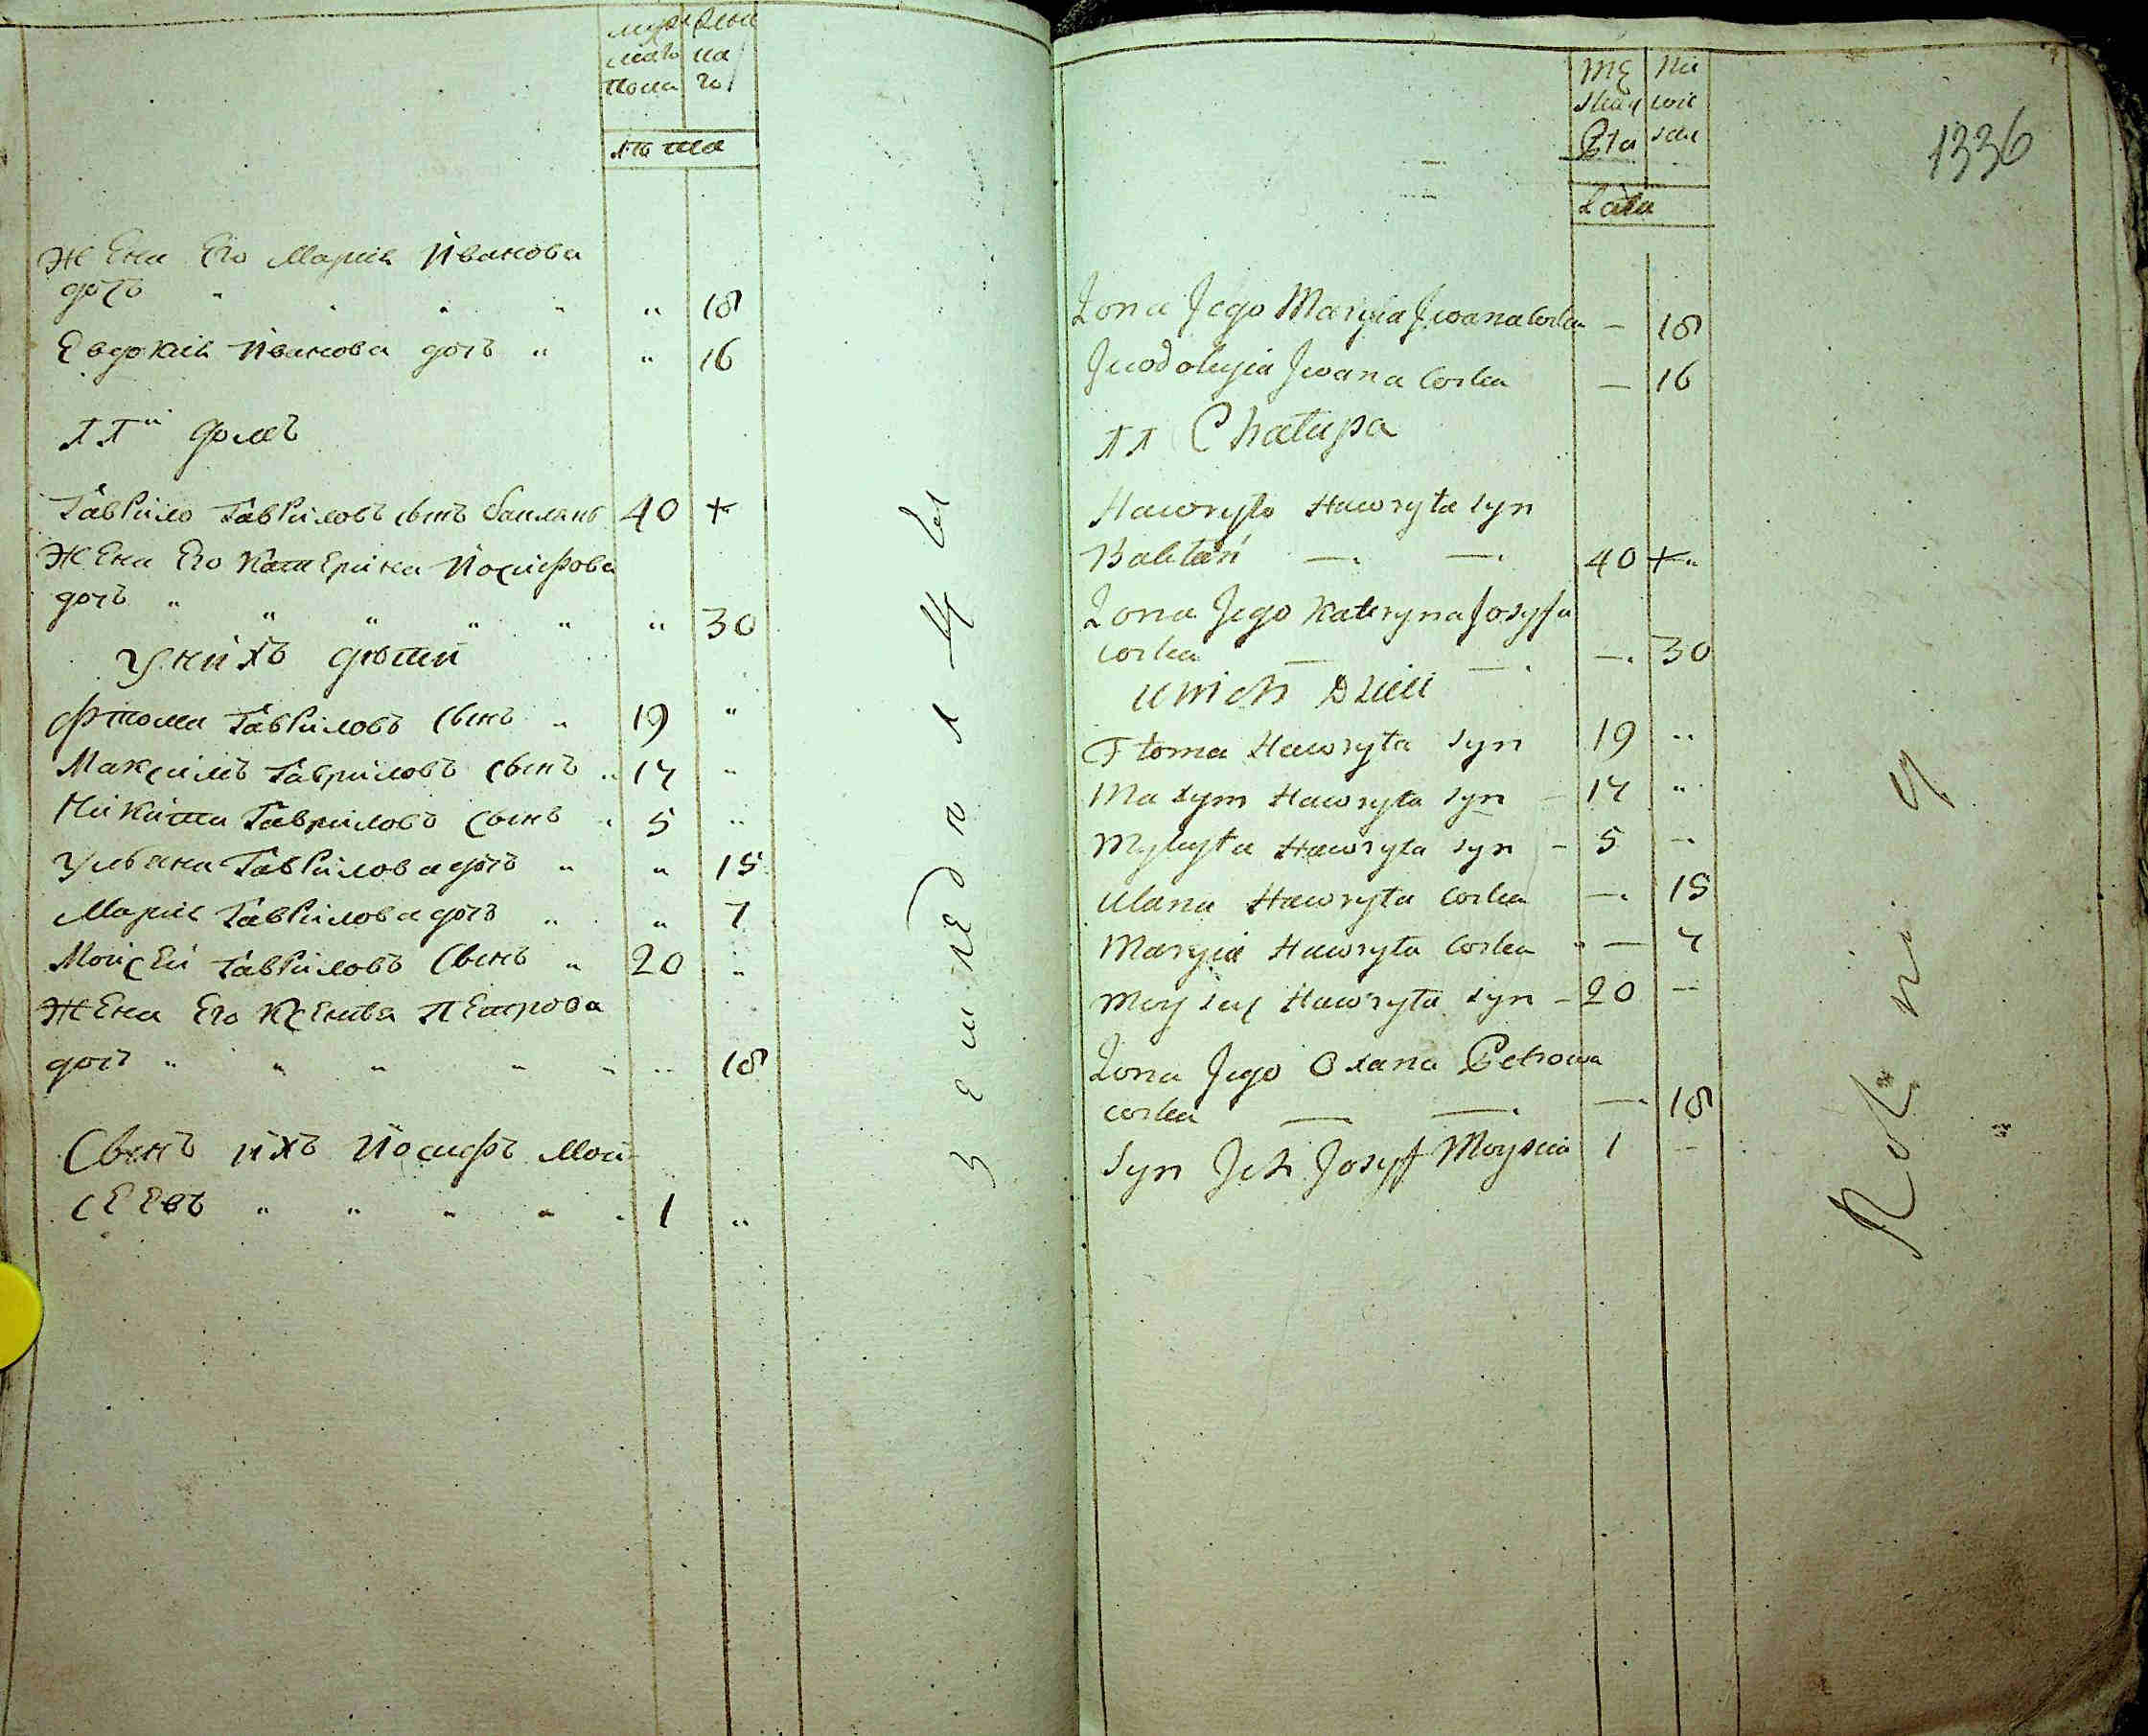 муж женс
скаго на
пола го
лѣта
Жена Его Марія Иванова
дочь " " " " " 18
Евдокія Иванова дочь " " 16
11й домъ
Гаврило Гавриловъ сынъ баиланъ 40 +
Жена Его Катерина Иосифова
дочь " " " " " " 30
У нихъ дѣти
Фтома Гавриловъ сынъ " 19 "
Максимъ Гавриловъ сынъ " 14 "
Никита Гавриловъ сынъ " 5 "
Ульяна Гаврилова дочь " " 15
Марія Гаврилова дочь " " 7
Моисей Гавриловъ сынъ " 20 "
Жена Его Ксенія Петрова
дочь " " " " " " 18
Сынъ ихъ Иосифъ Мои
сеевъ " " " " " 1 "
землед
1336
Mę Nie
skay wie
Pła scie
Lata
Zona Jego Maryia Jwana Corka — 18
Jwodokyia Jwana Corka — 16
11 Chałupa
Hawryło Hawryła syn
Bakłań —. —. 40 +"
Zona Jego Kateryna Josyfa
corka — —. —. 30
u nich Dzieci
Ftoma Hawryła syn 19 "
Maxym Hawryła syn — 14 "
Mykyta Hawryła syn — 5 —
Ulana Hawryła Corka —. 15
Maryia Hawryła Corka " — 7
Moysey Hawryła syn — 20 —
Zona Jego Oxana Petrowa
corka — —. —. 18
Syn Jch Josyf Moyseia 1 —